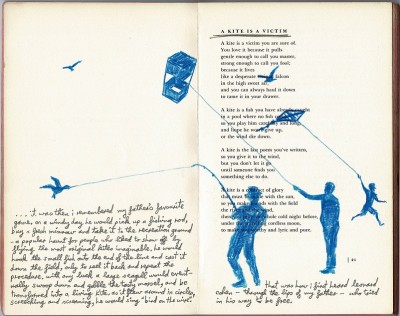 A KITE IS A VICTIM
A kite is a victim you are sure of.
You love it because it pulls
gentle enough to call you master,
strong enough to call you fool;
because it lives
like a desperate falcon
in the high sweet air,
and you can always haul it down
to tame it in your drawer.
A kite is a fish you have already caught
in a pool where no fish
so you play him carefully and long,
and hope he won't give up,
or the wind die down.
A kite is the last poem you've written,
so you give it to the wind,
but you don't let it go
until someone finds you
something else to do.
A kite is a contract of glory
that must be made with the sun,
so you make friends with the field
the river and the wind,
then you pray the whole cold night before,
under the travelling cordless moon,
to make you worthy and lyric and pure.
.... it was then i remembered my father's favourite
game, on a windy day he would pick up a fishing rod,
buy a fresh minnow and take it to the recreation ground
- a popular haunt for people who liked to show off
flying the most original kites imaginable, he would
hook the small fish onto the end of the line and cast it
down the field, only to reel it back and repeat the
procedure, until any luck a large seagull would event-
ually swoop down and gobble the tasty morsel, and be
transformed into a living kite. as it flew around in circles,
screeching and screaming, he would sing 'bird on the wire'.
that was how i first heard leonard
cohen - through the lips of my father - who tried
in his way to be free.